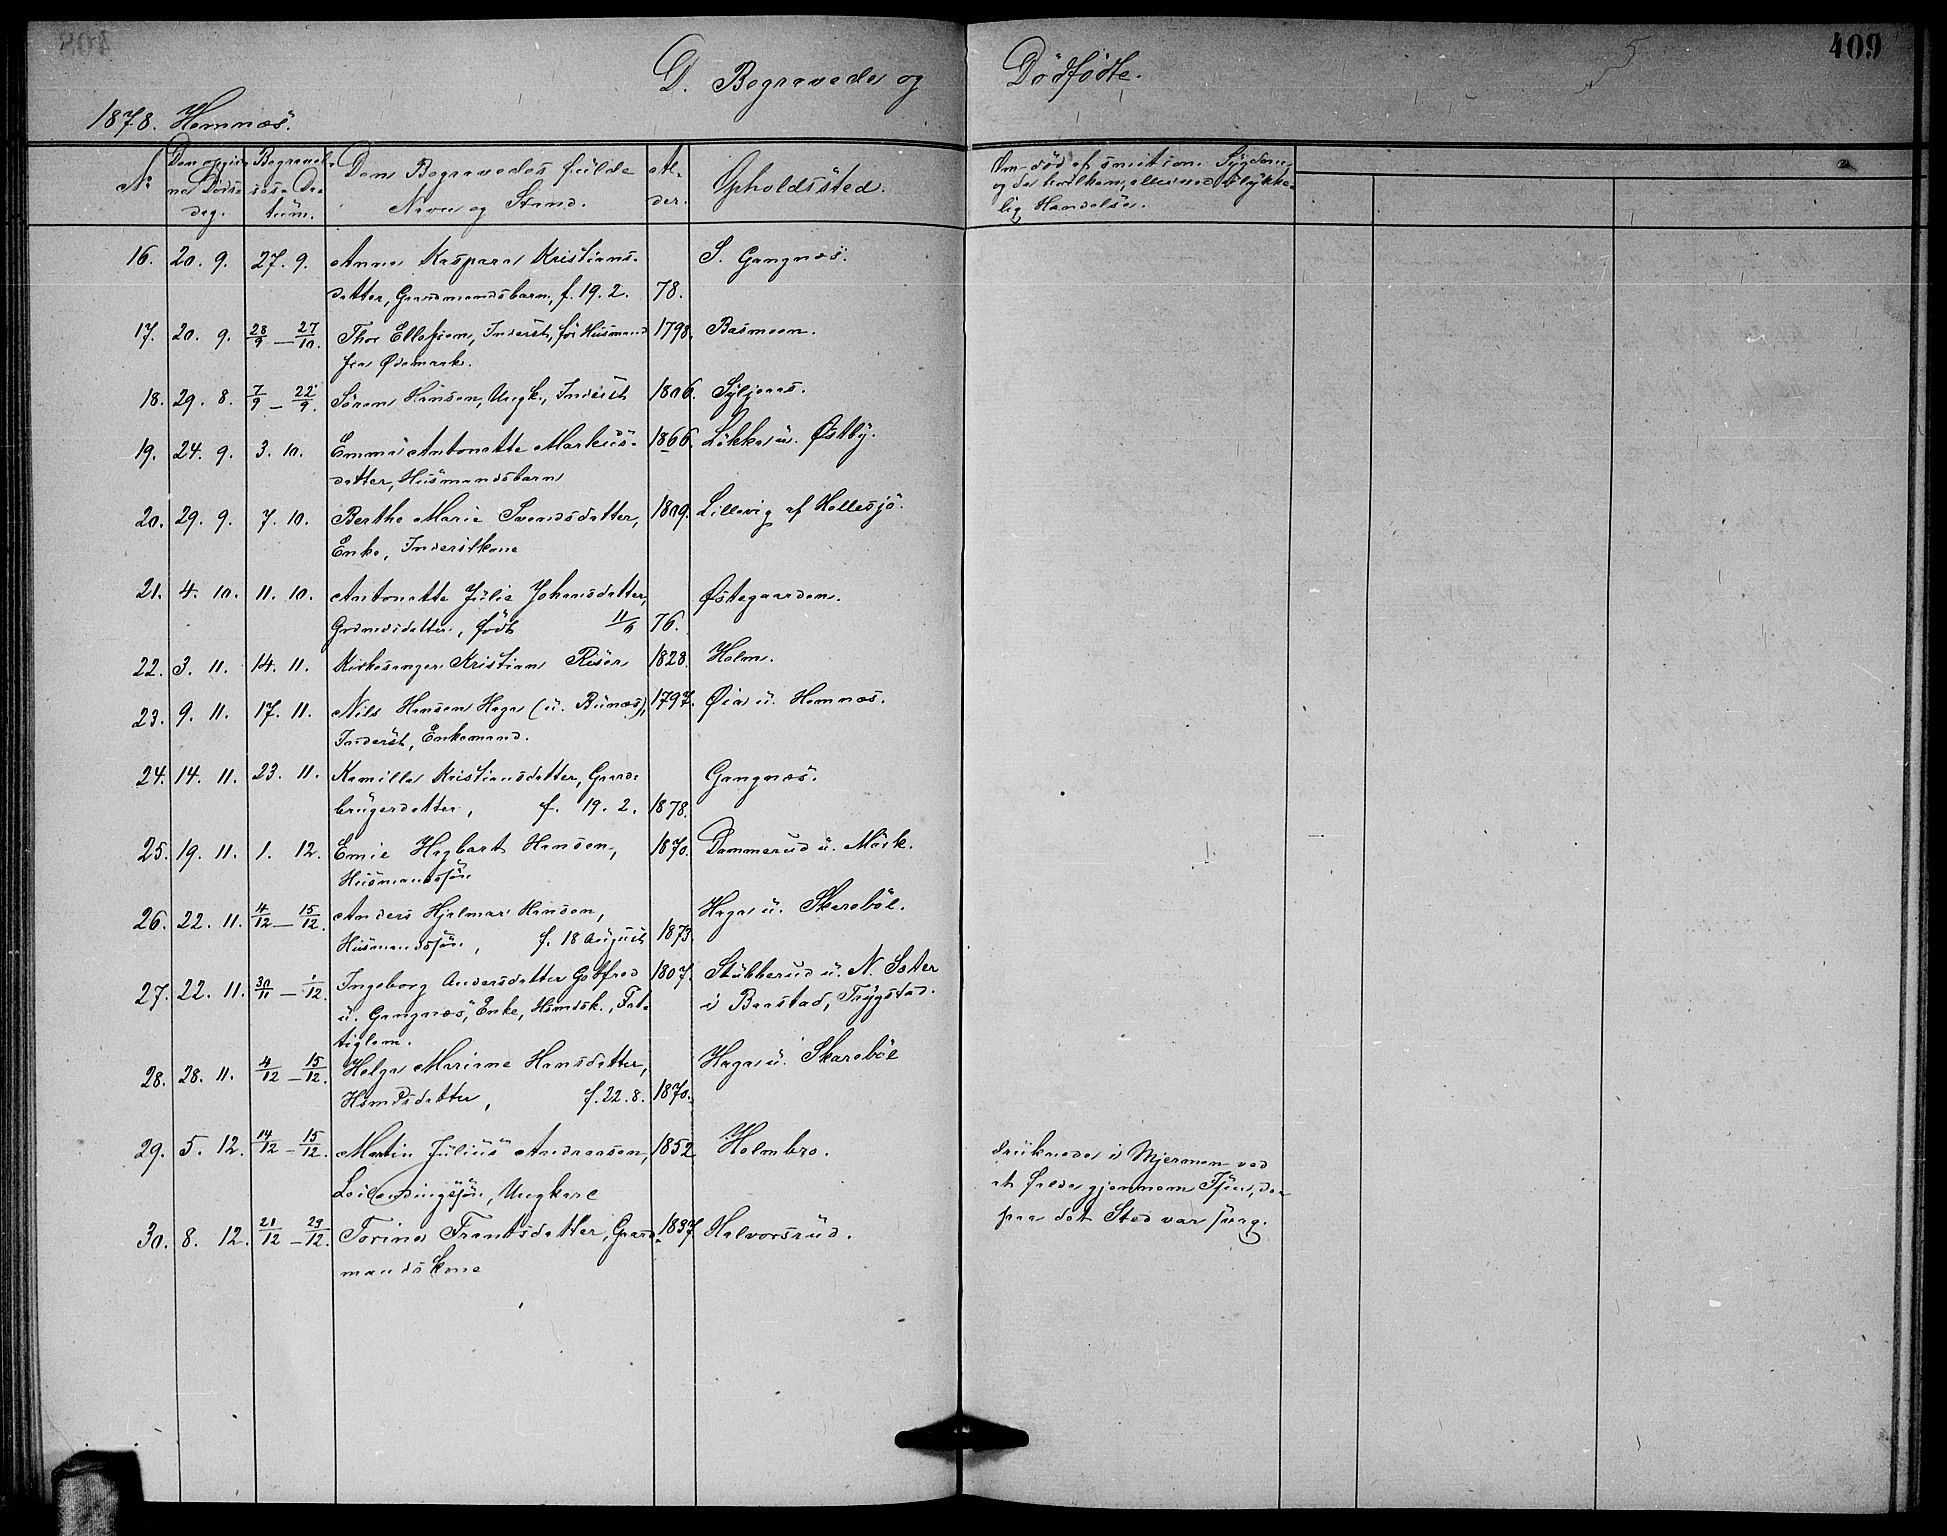 409
D. Begravede og Dødfødte.
1878. Hemnæs.
No
Den opgivne Dødsdag.
Begravelsens Datum.
Den Begravedes fulde Navn og Stand.
Alder.
Opholdssted.
Om død af smitsom Sygdom, og da hvilken, eller ved ulykkelig Hændelse.
16. 20. 9. 27. 9. Anna Kaspara Kristians- S. Gangnæs.
datter, Gaardmandsbarn, f. 19. 2. 78.
17. 20. 9. 28/9 – 27/10. Thor Ellefsen, Inderst, før Husmand 1798. Basmoen.
fra Ødemark.
18. 29. 8. 7/9 – 22/9. Søren Hansen, Ungk., Inderst 1806. Syljeaas.
19. 24. 9. 3. 10. Emma Antonette Markus- 1866. Løkka u. Østby.
datter, Husmandsbarn
20. 29. 9. 7. 10. Berthe Marie Svendsdatter, 1809. Lillevig af Hellesjø.
Enke, Inderstkone
21. 4. 10. 11. 10. Antonette Julie Johansdatter, Østegaarden.
Grdmdsdatter, født 11/6 76.
22. 3. 11. 14. 11. Kirkesanger Kristian Risér 1828. Holm.
23. 9. 11. 17. 11. Nils Hansen Haga (u. Bunæs), 1797. Øia u. Hemnæs.
Inderst, Enkemand.
24. 14. 11. 23. 11. Kamilla Kristiansdatter, Gaard- Gangnæs.
brugerdatter, f. 19. 2. 1878.
25. 19. 11. 1. 12. Emie Hagbart Hansen, 1870. Dammerud u. Mörk.
Husmandssøn
26. 22. 11. 4/12 – 15/12. Anders Hjalmar Hansen, Haga u. Skarebøl.
Husmandssøn, f. 18 August 1873.
27. 22. 11. 30/11 – 1/12. Ingeborg Andersdatter Gotfred 1807. Stubberud u. N. Sæter
u. Gangnæs, Enke, Hsmdsk., Fat- i Baastad, Trygstad.
tiglem.
28. 28. 11. 4/12 – 15/12. Helga Mariane Hansdatter, Haga u. Skarebøl
Hsmdsdatter, f. 22. 8. 1870.
29. 5. 12. 14/12 – 15/12. Martin Julius Andreasen, 1852 Holmbro. druknede i Mjermen ved
Leilændingssøn, Ungkarl at falde gjennem Isen, der
paa det Sted var svag.
30. 8. 12. 21/12 – 29/12. Torine Frantsdatter, Gaard- 1837 Halvorsrud.
mandskone